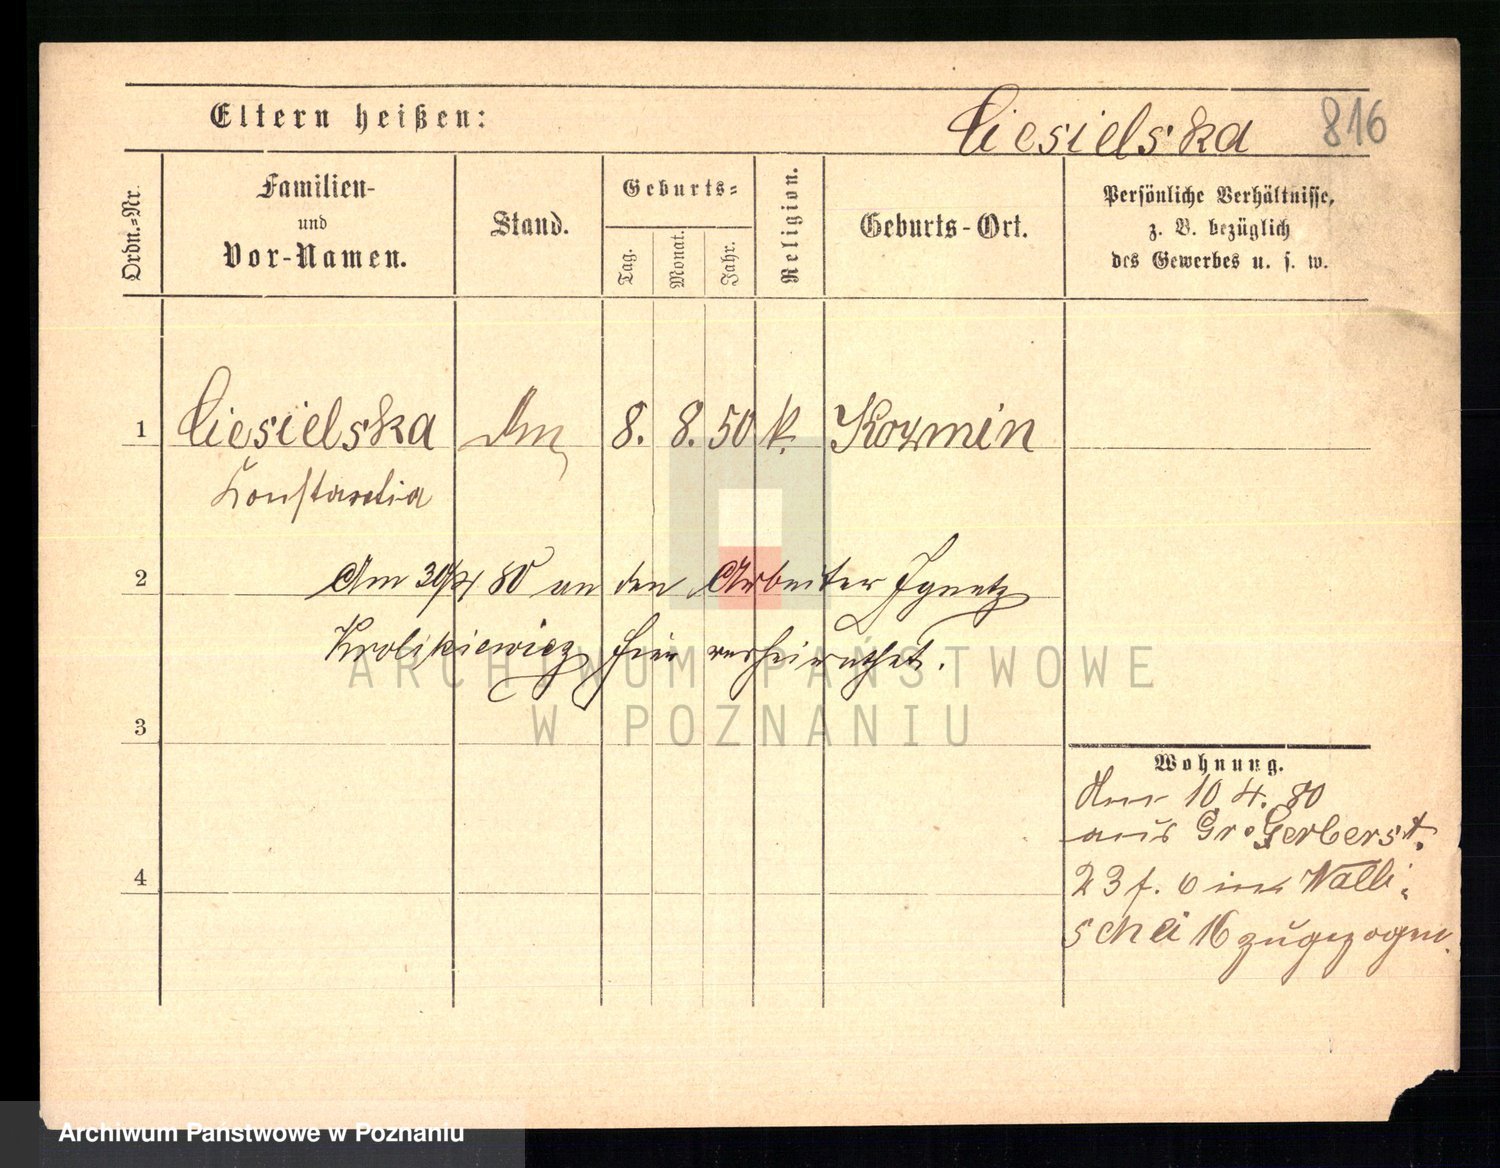 Eltern heißen:
Ciesielska
816
Ordn.-Nr.
Familien-
und
Vor-Namen.
Stand.
Geburts-
Tag.
Monat.
Jahr.
Religion.
Geburts-Ort.
Persönliche Verhältnisse,
z. B. bezüglich
des Gewerbes u. s. w.
1 Ciesielska 8. 8. 50 k. Kozmin
Konstantia
2
Am 80 an den Arbeiter Ignatz
Krolikiewicz hier verheirathet.
ARCHIWUM PAŃSTWOWE
W POZNANIU
3
4
Wohnung.
10 4. 80
aus Gr. Gerberst.
23 f. 6 in Walli-
schei 16 zugezogen.
Archiwum Państwowe w Poznaniu